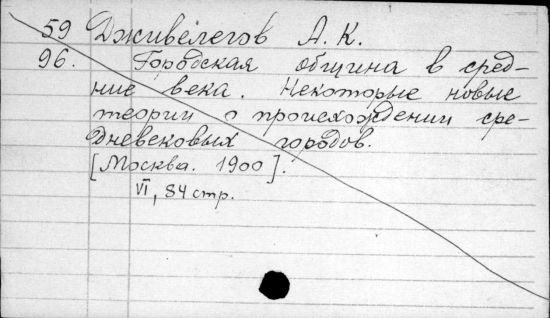 59 Дживелегов А. К.
96. Городская община в сред-
ние века. Некоторые новые
теории о происхождении сре-
дневековых городов.
[Москва. 1900].
VI, 84 стр.